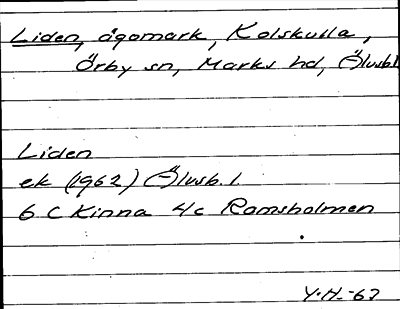 Liden, ägomark, Kolskulla,
Örby sn, Marks hd, Älvsb.l
Liden
ek (1962) Älvsb. l.
6 C Kinna 4c Romsholmen
Y.H.-67